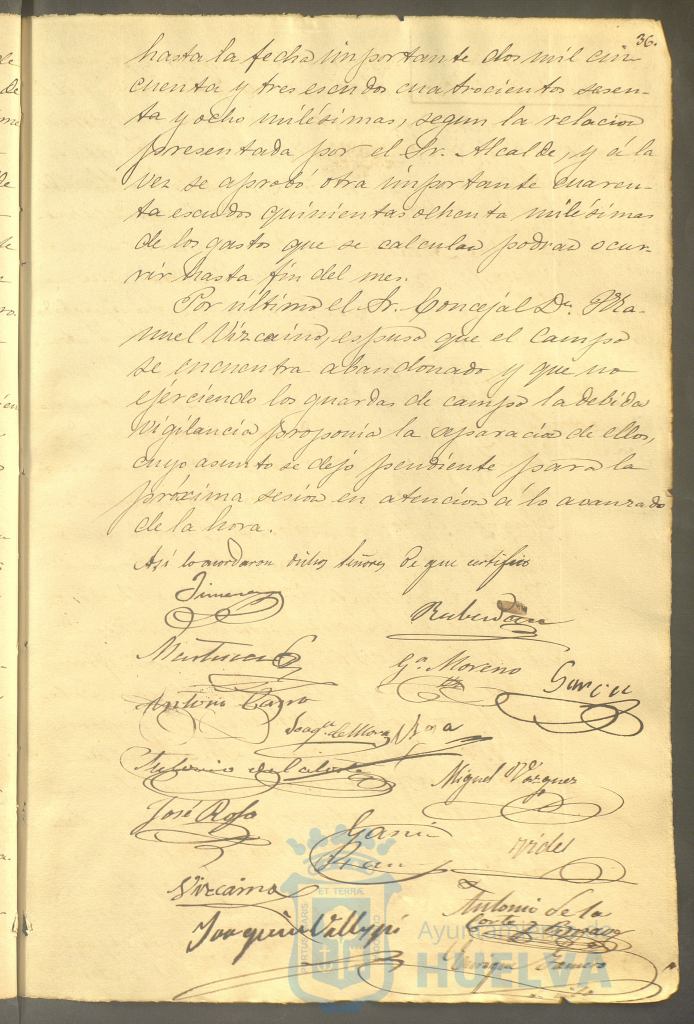 36.
hasta la fecha importante dos mil cin-
cuenta y tres escudos cuatrocientos sesen-
ta y ocho milésimas, segun la relacion
presentada por el Sr. Alcalde, y á la
vez se aprobó otra importante cuaren-
ta escudos quinientas ochenta milésimas
de los gastos que se calculan podran ocur-
rir hasta fin del mes.
Por último el Sr. Concejal Dn. Ma-
nuel Vizcaino, espuso que el campo
se encuentra abandonado y que no
ejerciendo los guardas de campo la debida
vigilancia proponia la separacion de ellos,
cuyo asunto se dejó pendiente para la
próxima sesion en atencion á lo avanzado
de la hora.
Así lo acordaron dichos Señores de que certifico
Jimenez
Ga. Moreno
Garcia
Antonio
Joaqn. de Mora
Antonio del
Miguel Vázquez
José Rojo
Garcia
Vides
Vizcaino
Antonio de la
Corte
Joaquin Vallypi
Ayuntamiento
HUELVA
ET TERRAE
PORTUS MARIS
CUSTODIA